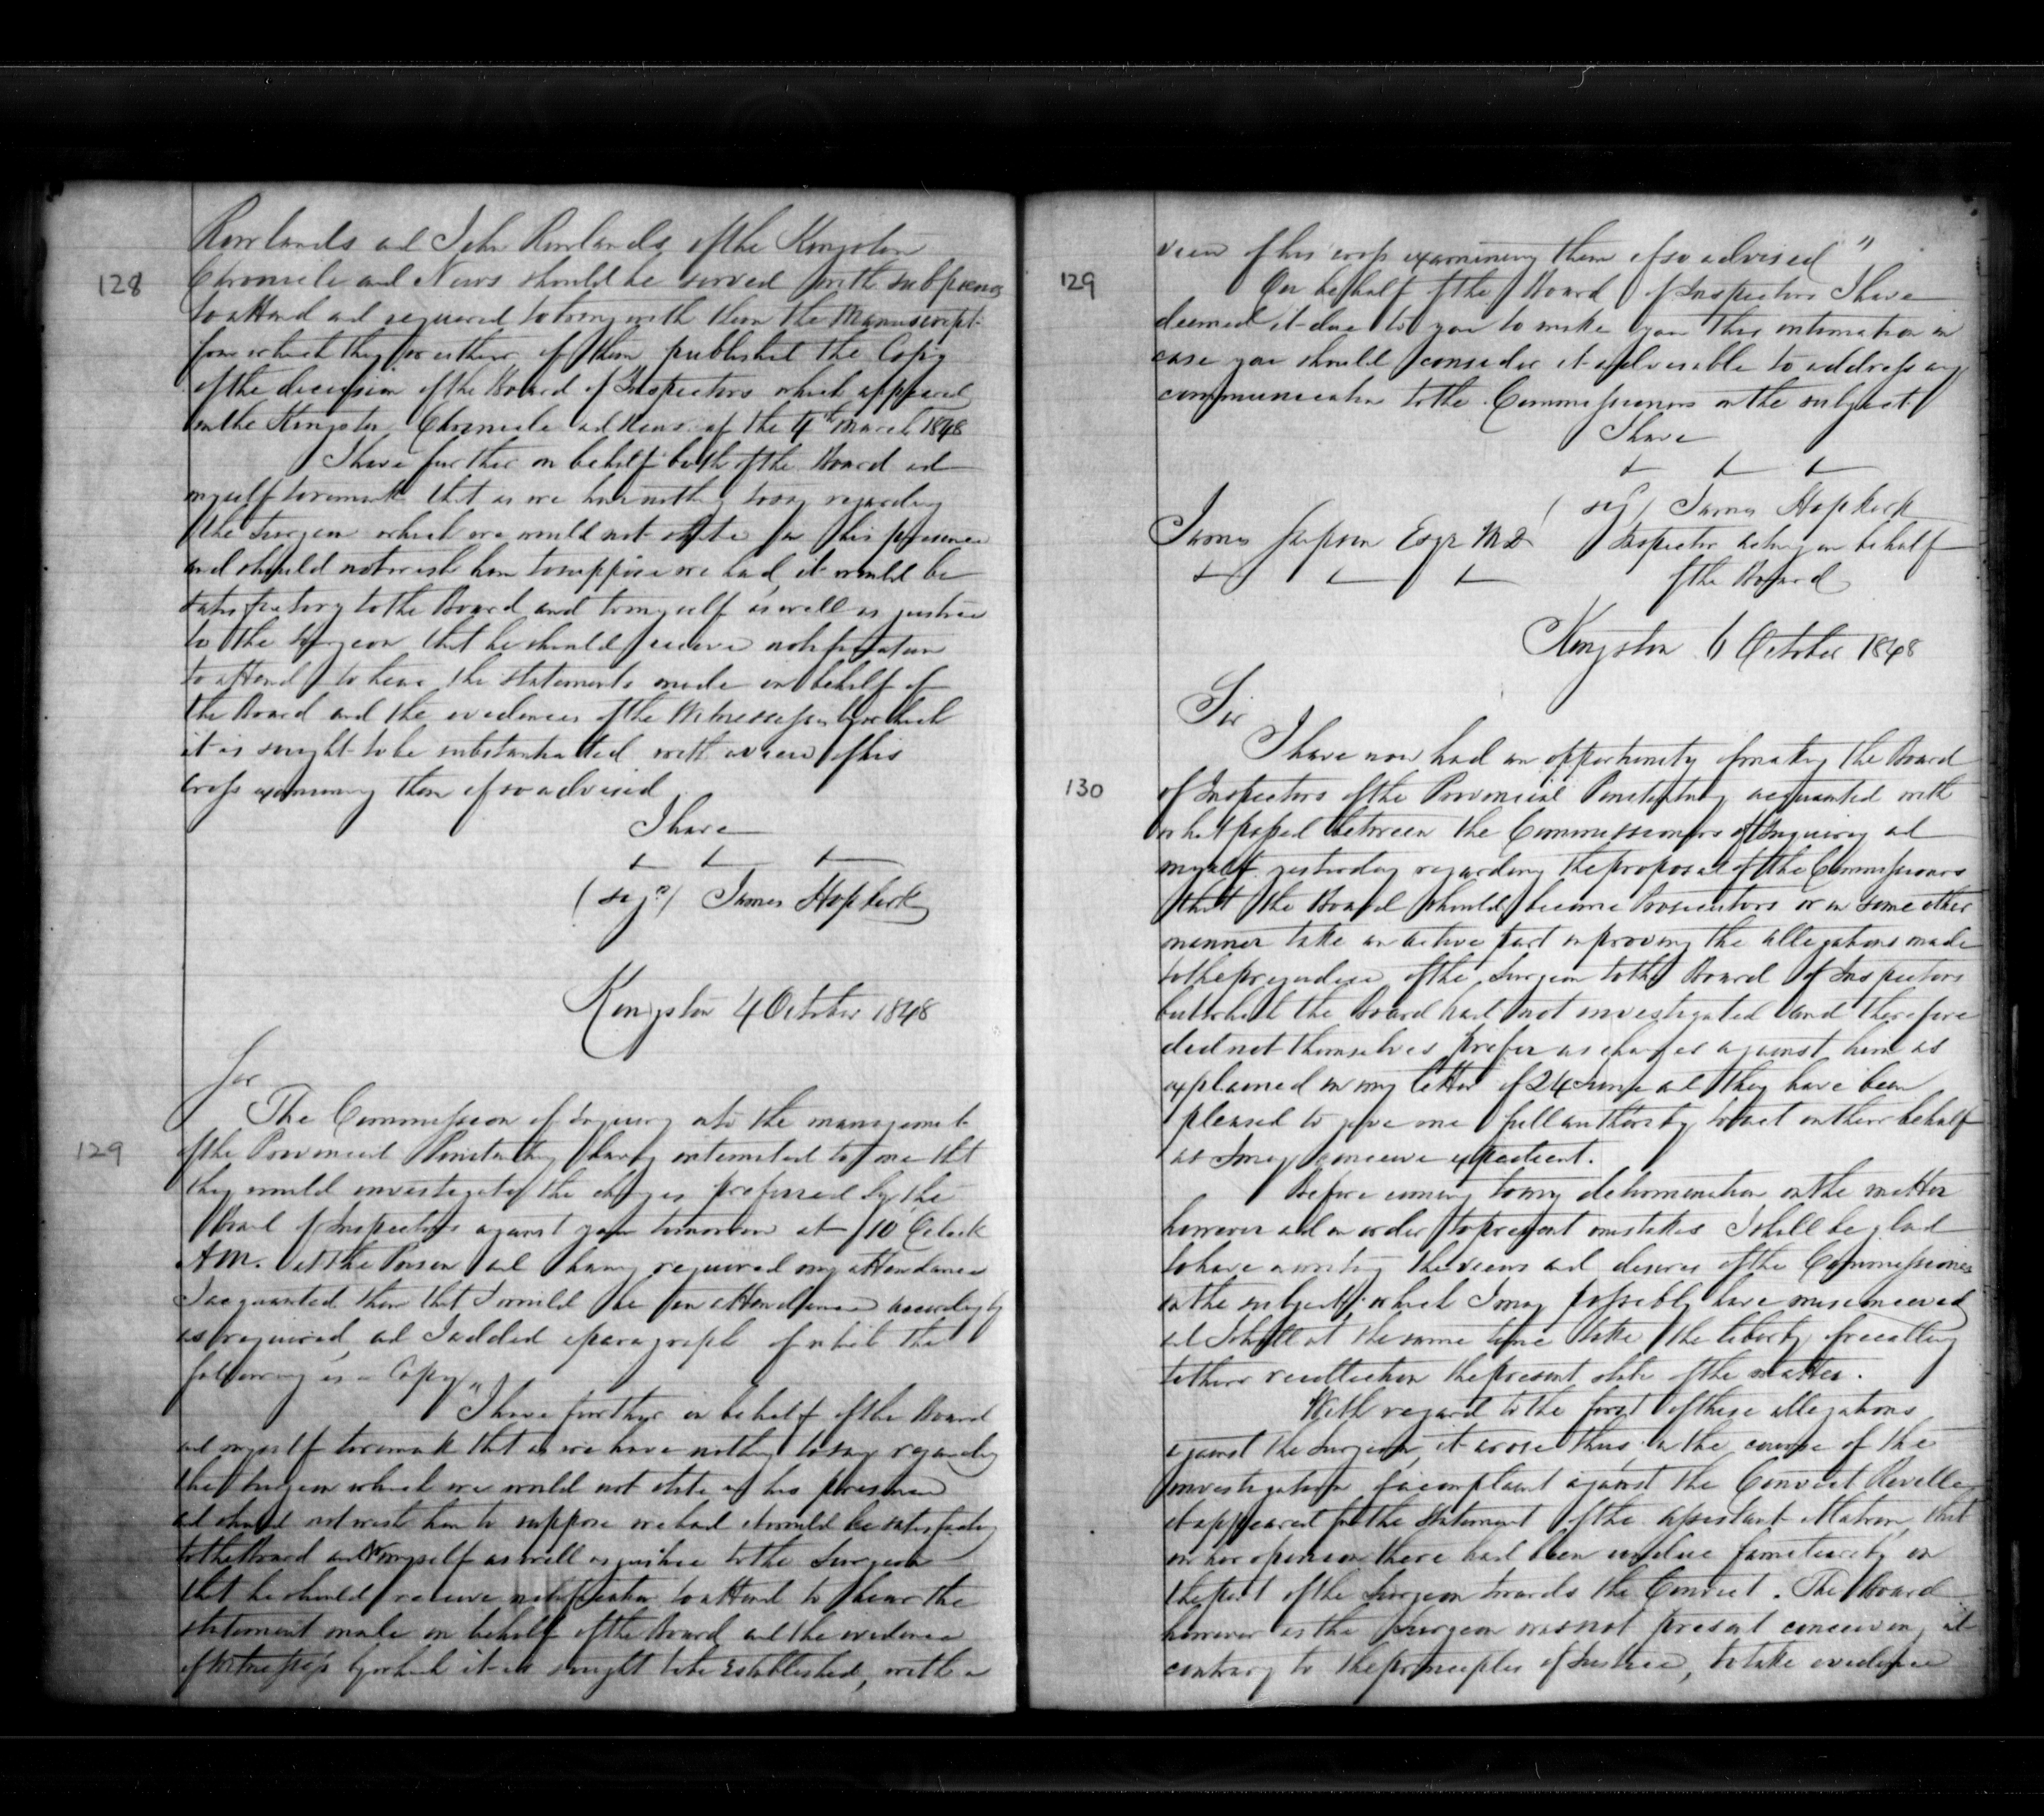 Rowlands and John Rowlands of the Kingston
128
Chronicle and News should be served with subpoenas
to attend and required to bring with them the Manuscript
from which they or either of them published the Copy
of the decision of the Board of Inspectors which appeared
in the Kingston Chronicle and News of the 4th March 1848
I have further on behalf both of the Board and
myself to remark that as we have nothing to say regarding
the Surgeon which we would not state in his presence
and should not wish him to suppose we had, it would be
satisfactory to the Board and to myself as well as justice
to the Surgeon that he should receive notification
to attend to hear the statements made on behalf of
the Board and the evidences of the Witnesses by which
it is sought to be substantiated with a view of his
cross examining them if so advised
I have
(sigd) James Hopkirk
Kingston 4 October 1848
Sir
The Commission of Inquiry into the management
129
of the Provincial Penitentiary having intimated to me that
they would investigate the charges preferred by the
Board of Inspectors against you tomorrow at 10 Oclock
AM. at the Prison and having required my attendance
I acquainted them that I would be in attendance accordingly
as required, and I added a paragraph of which the
following is a Copy
"I have further on behalf of the Board
and myself to remark that as we have nothing to say regarding
the Surgeon which we would not state in his presence
and should not wish him to suppose we had it would be satisfactory
to the Board and to myself as well as justice to the Surgeon
that he should receive notification to attend to hear the
statement made on behalf of the Board and the evidence
of witnesses by which it is sought to be established, with a
view of his cross examining them if so advised"
129
On behalf of the Board of Inspectors I have
deemed it due to you to make you this intimation in
case you should consider it advisable to address any
communication to the Commissioners on the subject
I have
(sigd) James Hopkirk
James Sampson Esqr M.D.
Inspector acting on behalf
of the Board
Kingston 6 October 1848
Sir
I have now had an opportunity of making the Board
130
of Inspectors of the Provincial Penitentiary acquainted with
what passed between the Commissioners of Inquiry and
myself yesterday regarding the proposal of the Commissioners
that the Board should become Prosecutors or in some other
manner take an active part in proving the allegations made
to the prejudice of the Surgeon to the Board of Inspectors
but which the Board had not investigated and therefore
did not themselves prefer as charges against him as
explained in my letter of 24 June and they have been
pleased to give me full authority to act on their behalf
as I may conceive expedient.
Before coming to my determination on the matter
however and in order to prevent mistakes I shall be glad
to have in writing the views and desires of the Commissioners
on the subject, which I may possibly have misconceived
and I shall at the same time take the liberty of recalling
to their recollection the present state of the matter.
With regard to the first of these allegations
against the Surgeon, it arose thus: in the course of the
investigation of a complaint against the Convict Revelle
it appeared from the statement of the Assistant Matron, that
in her opinion there had been undue familiarity on
the part of the Surgeon towards the Convict. The Board
however as the Surgeon was not present conceiving it
contrary to the principles of Justice, to take evidence